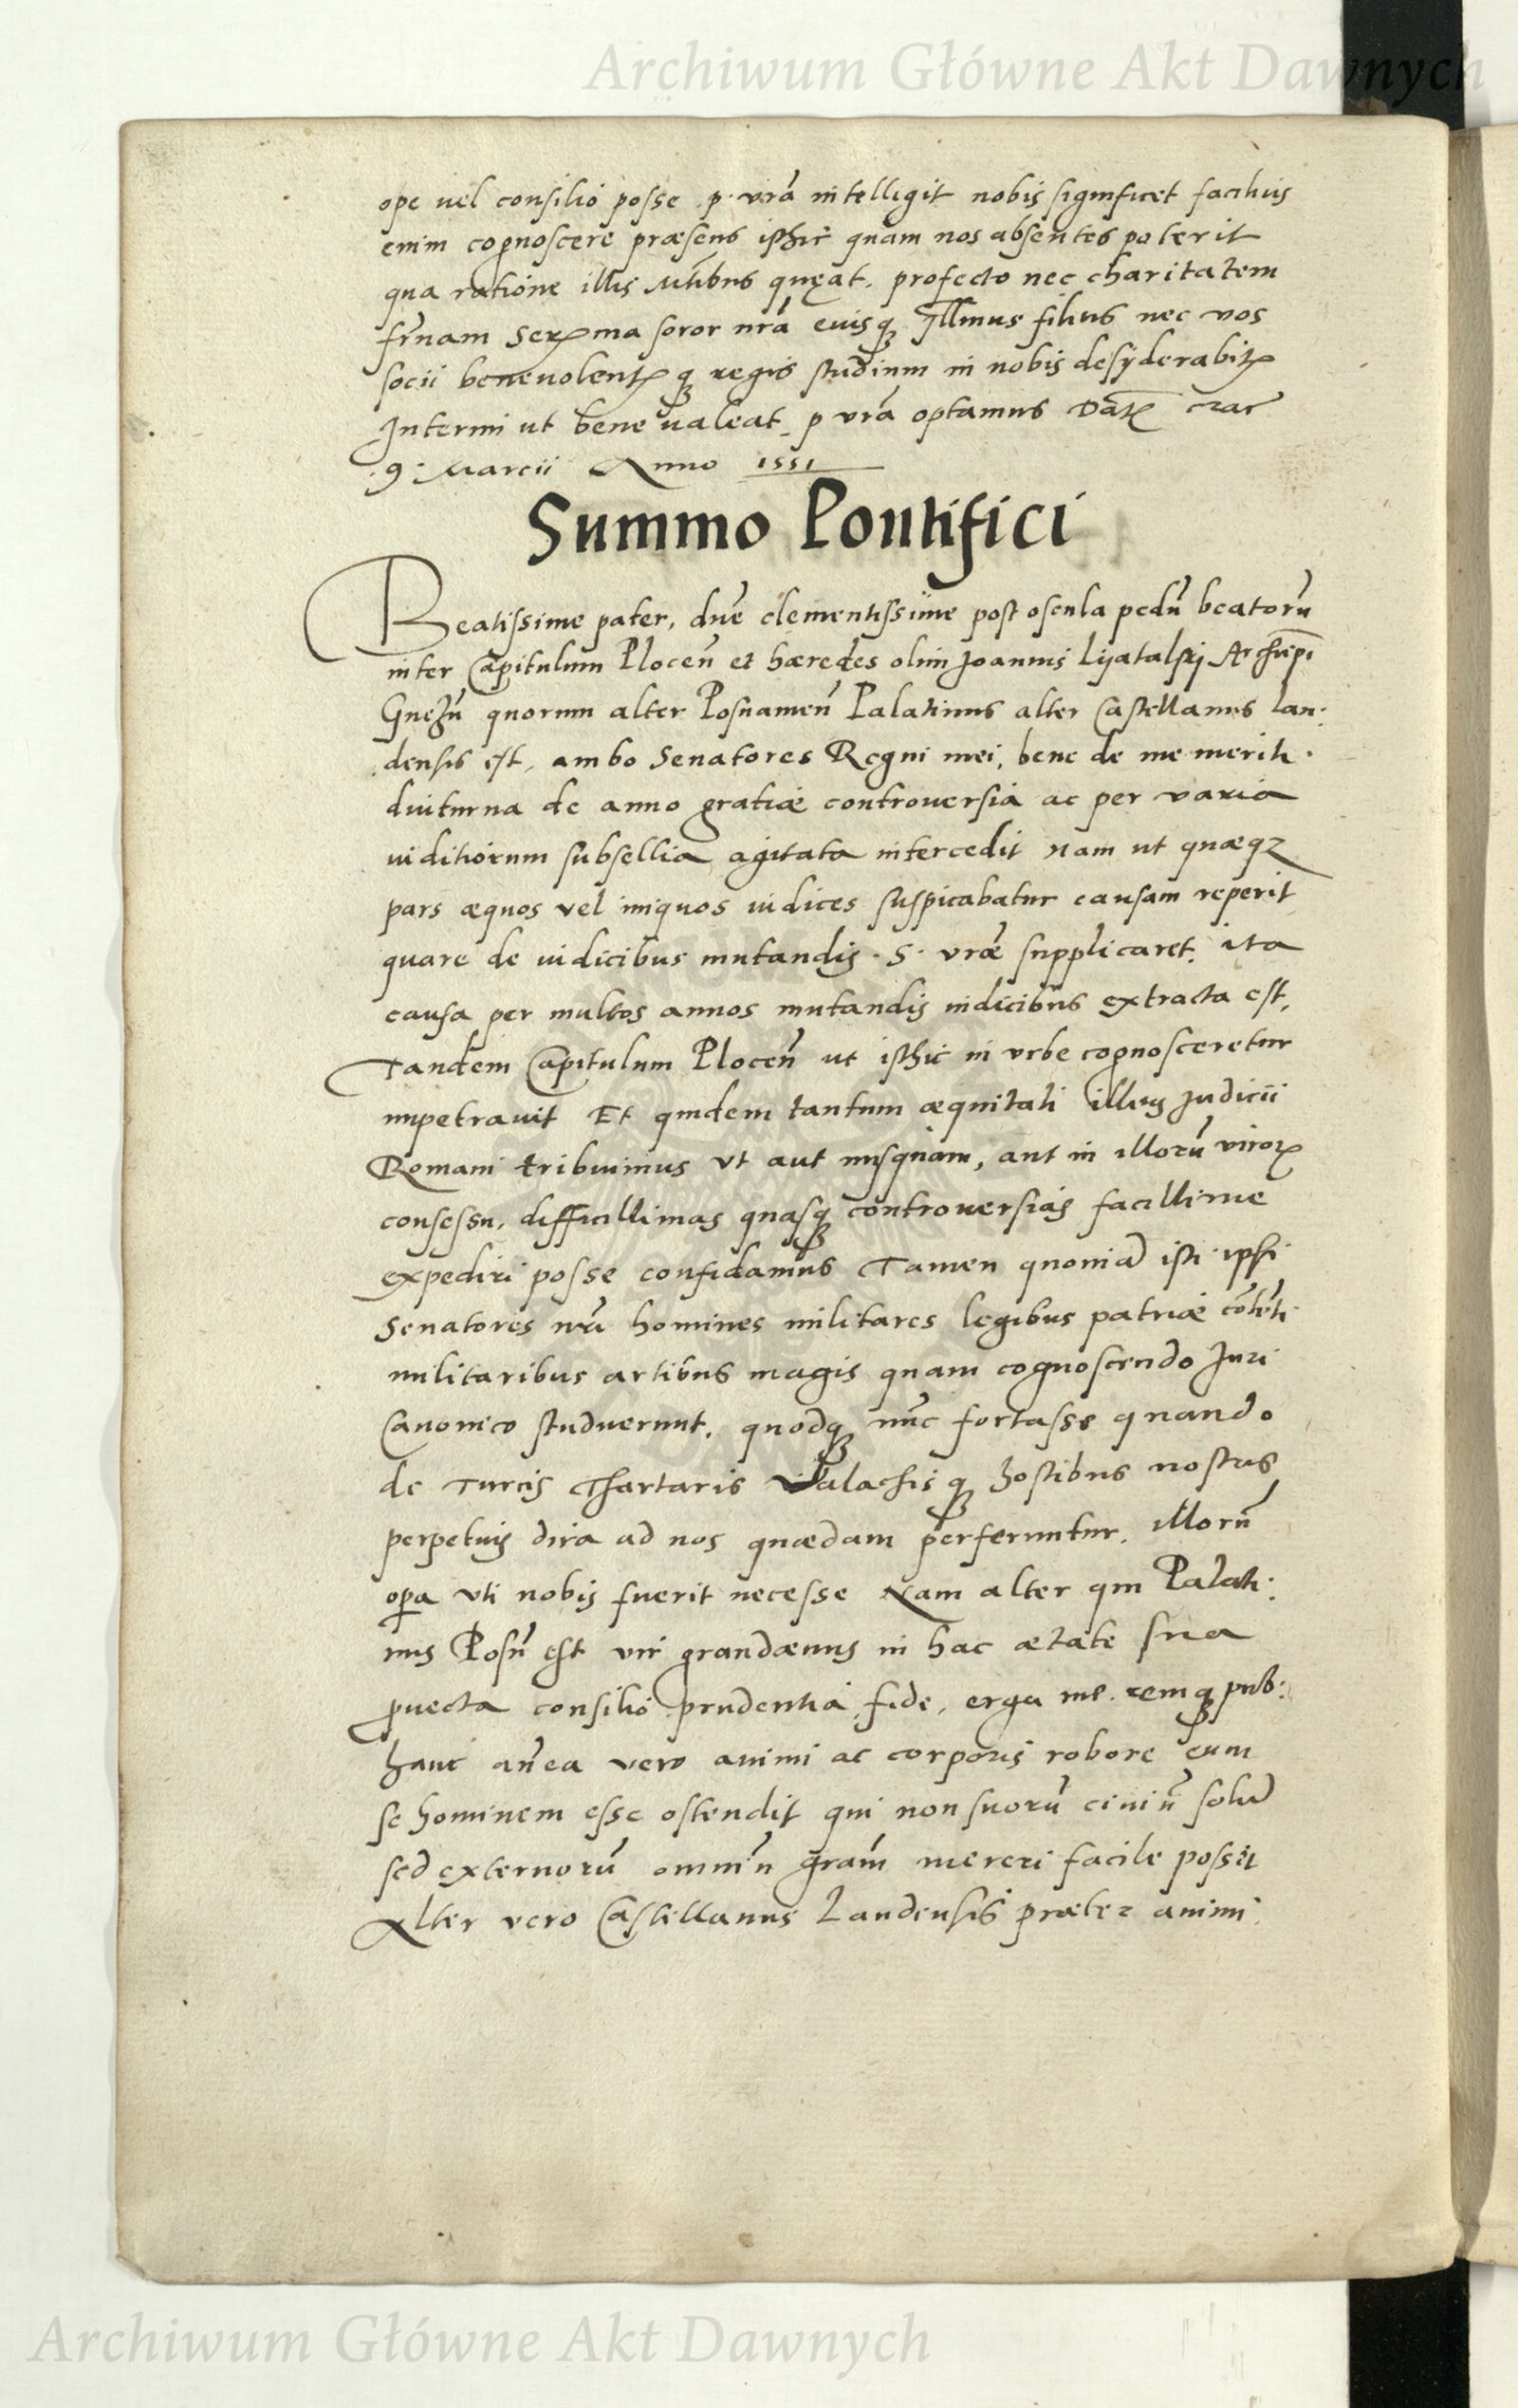 Archiwum Główne Akt Dawnych
ope uel consilio posse . p. vrã intelligit nobis significet facilius
enim cognoscere præsens isthic quam nos absentes poterit
qua ratione illis queat. profecto nec charitatem
frñam Serma soror nrã euisq Jllmus filius nec vos
socii beneuolentq regis studium in nobis desyderabit
Interim ut bene ualeat p vrã optamus Dat Crac
. 9 . Marcii Anno 1551
Summo Pontifici
Beatissime pater, dñe clementissime post oscula pedũ beatorũ
inter Capitulum Plocen̄ et hæredes olim Joannis Lijatalski Archiepi
Gnezn̄ quorum alter Posnanien̄ Palatinus alter Castellanus Lan:
densis est, ambo Senatores Regni mei, bene de me meriti .
diuturna de anno gratiæ controuersia ac per varia
iuditiorum subsellia agitata intercedit nam ut quæqz
pars æquos vel iniquos iudices suspicabatur causam reperit
quare de iudicibus mutandis . S . vræ supplicaret. ita
causa per multos annos mutandis iudicibus extracta est,
Tandem Capitulum Plocen̄ ut isthic in vrbe cognosceretur
impetrauit Et quidem tantum æquitati illius Judicii
Romani tribuimus vt aut nusquam, aut in illorũ viror
consessu, difficillimas quasq controuersias facillime
expediri posse confidamus Tamen quoniã isti ipsi
Senatores nrĩ homines militares legibus patriæ cõtẽti
militaribus artibus magis quam cognoscendo Juri
Canonico studuerunt, quodq nũc fortasse quando
de Turcis Thartaris Valachisq hostibus nostris
perpetuis dira ad nos quædam perferuntur, illorũ
opa vti nobis fuerit necesse Nam alter qui Palati:
nus Posn̄ est vir grandæuus in hac ætate sua
puecta consilio prudentia, fide, erga me remq pub:
hanc añea vero animi ac corporis robore eum
se hominem esse ostendit qui non suorũ ciuiũ solũ
sed externorũ omniũ grãm mereri facile possit
Alter vero Castellanus Landensis præter animi
Archiwum Główne Akt Dawnych